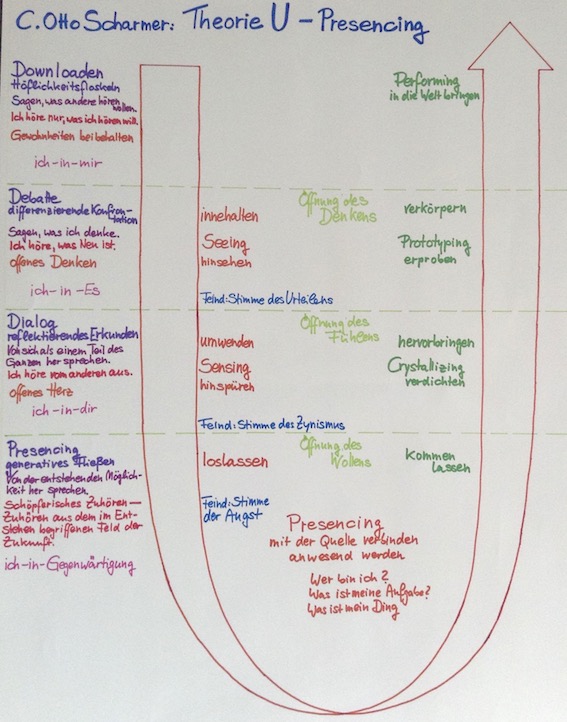 C. Otto Scharmer: Theorie U - Presencing
Downloaden
Höflichkeitsfloskeln
Sagen, was andere hören wollen.
Ich höre nur, was ich hören will.
Gewohnheiten beibehalten
ich-in-mir
Performing
in die Welt bringen
Debatte
differenzierende Konfron-
tation
Sagen, was ich denke.
Ich höre, was Neu ist.
offenes Denken
ich-in-Es
innehalten
Seeing
hinsehen
Feind: Stimme des Urteilens
Öffnung des
Denkens
verkörpern
Prototyping
erproben
Dialog
reflektierendes Erkunden
Von sich als einem Teil des
Ganzen her sprechen.
Ich höre vom anderen aus.
offenes Herz
ich-in-dir
umwenden
Sensing
hinspüren
Feind: Stimme des Zynismus
Öffnung des
Fühlens
hervorbringen
Crystallizing
verdichten
Presencing
generatives Fließen
Von der entstehenden Möglich-
keit her sprechen.
Schöpferisches Zuhören—
Zuhören aus dem im Ent-
stehen begriffenen Feld der
Zukunft.
ich-in-Gegenwärtigung
loslassen
Feind: Stimme
der Angst
Öffnung des
Wollens
kommen
lassen
Presencing
mit der Quelle verbinden
anwesend werden
Wer bin ich?
Was ist meine Aufgabe?
Was ist mein Ding